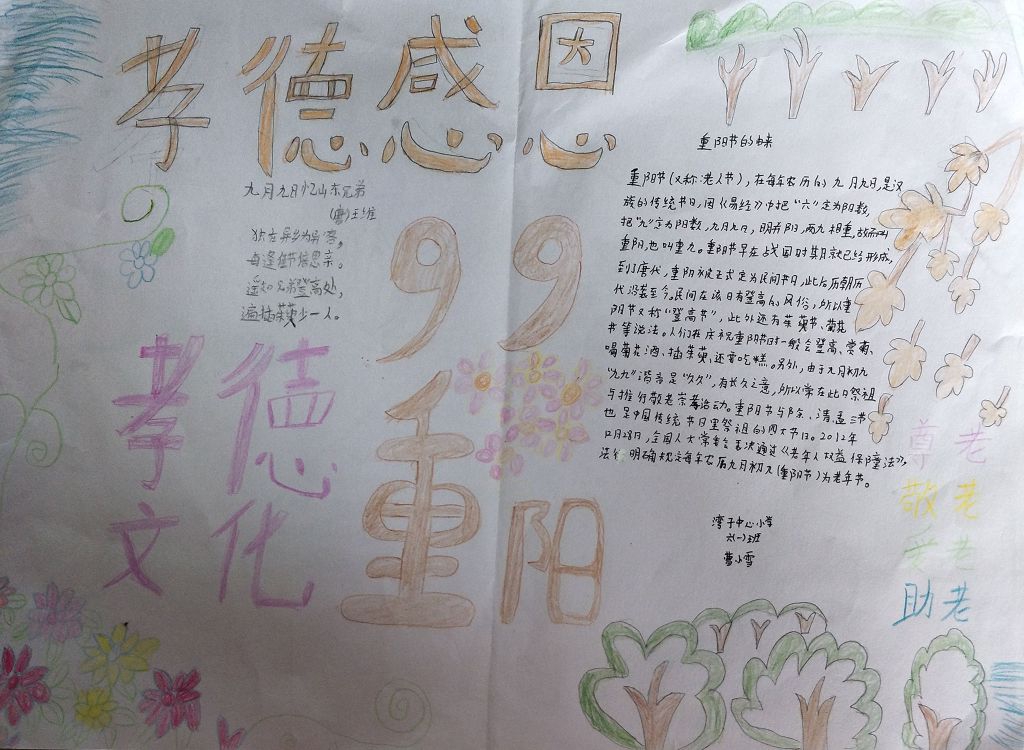 孝德感恩
九月九日忆山东兄弟
(唐)王维
独在异乡为异客，
每逢佳节倍思亲。
遥知兄弟登高处，
遍插茱萸少一人。
99
重阳
孝德
文化
重阳节的由来
重阳节(又称:老人节)，在每年农历的九月九日,是汉
族的传统节日,因《易经》中把“六”定为阴数,
把“九”定为阳数,九月九日，明并阳,两九相重,故而叫
重阳,也叫重九。重阳节早在战国时期就已经形成,
到了唐代，重阳被正式定为民间节日,此后历朝历
代沿袭至今。民间在该日有登高的风俗，所以重
阳节又称“登高节”，此外还有茱萸节、菊花
节等说法。人们在庆祝重阳节时一般会登高、赏菊、
喝菊花酒、插茱萸,还要吃糕。另外，由于九月初九
“九九”谐音是“久久”，有长久之意，所以常在此日祭祖
与推行敬老崇孝活动。重阳节与除、清、盂三节
也是中国传统节日里祭祖的四大节日。2012年
12月28日，全国人大常委会表决通过《老年人权益保障法》,
法律明确规定每年农历九月初九(重阳节)为老年节。
湾子中心小学
六(一)班
曹小雪
尊老
敬老
爱老
助老